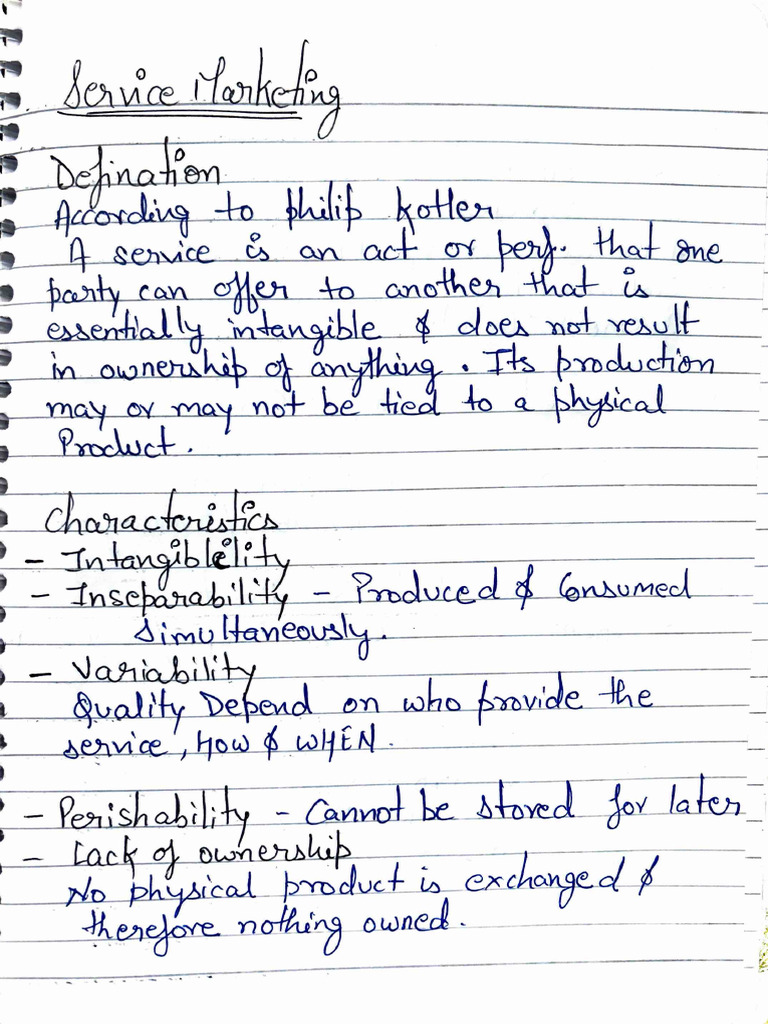 Service Marketing
Defination
According to Philip Kotler
A service is an act or perf. that one
party can offer to another that is
essentially intangible & does not result
in ownership of anything. Its production
may or may not be tied to a physical
Product.
Characteristics
- Intangiblelity
- Inseparability - Produced & Consumed
Simultaneously.
- Variability
Quality Depend on who provide the
service, HOW & WHEN.
- Perishability - Cannot be stored for later
- Lack of ownership
No physical product is exchanged &
therefore nothing owned.